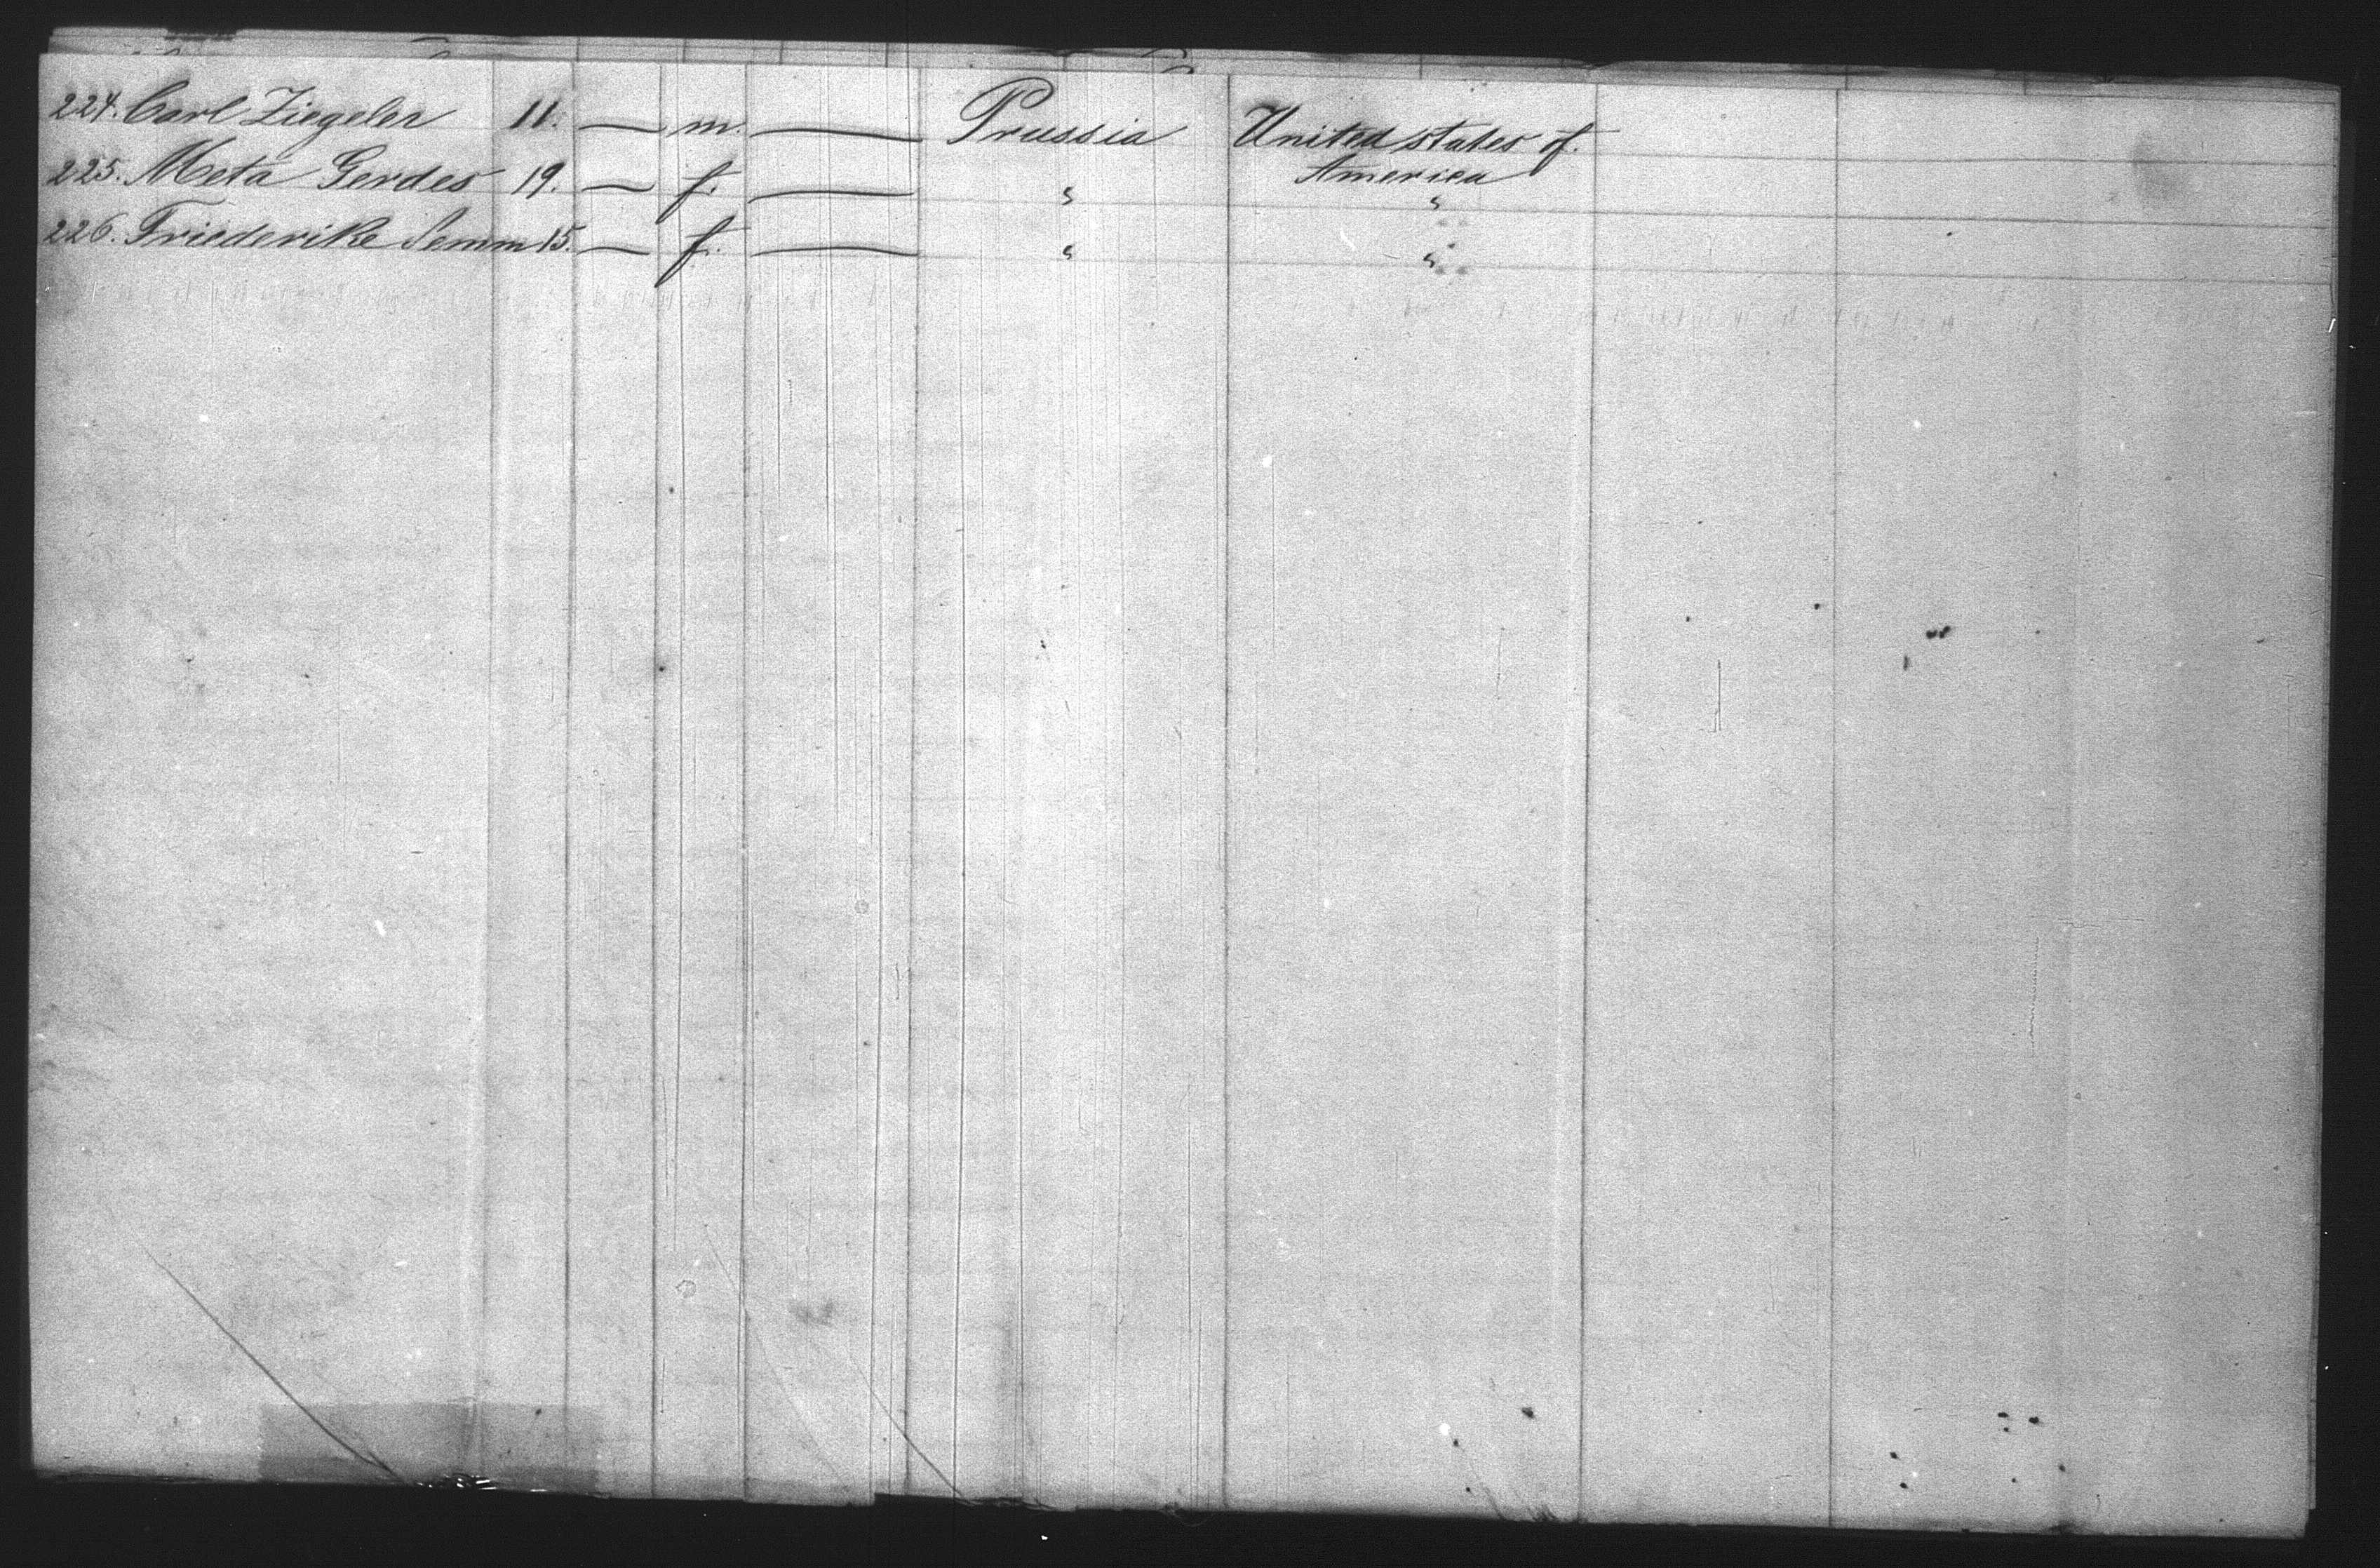 224. Carl Ziegeler 11. — m. — Prussia United states of
America
225. Meta Gerdes 19. — f. — " "
226. Friederike Semm 15. — f. — " "